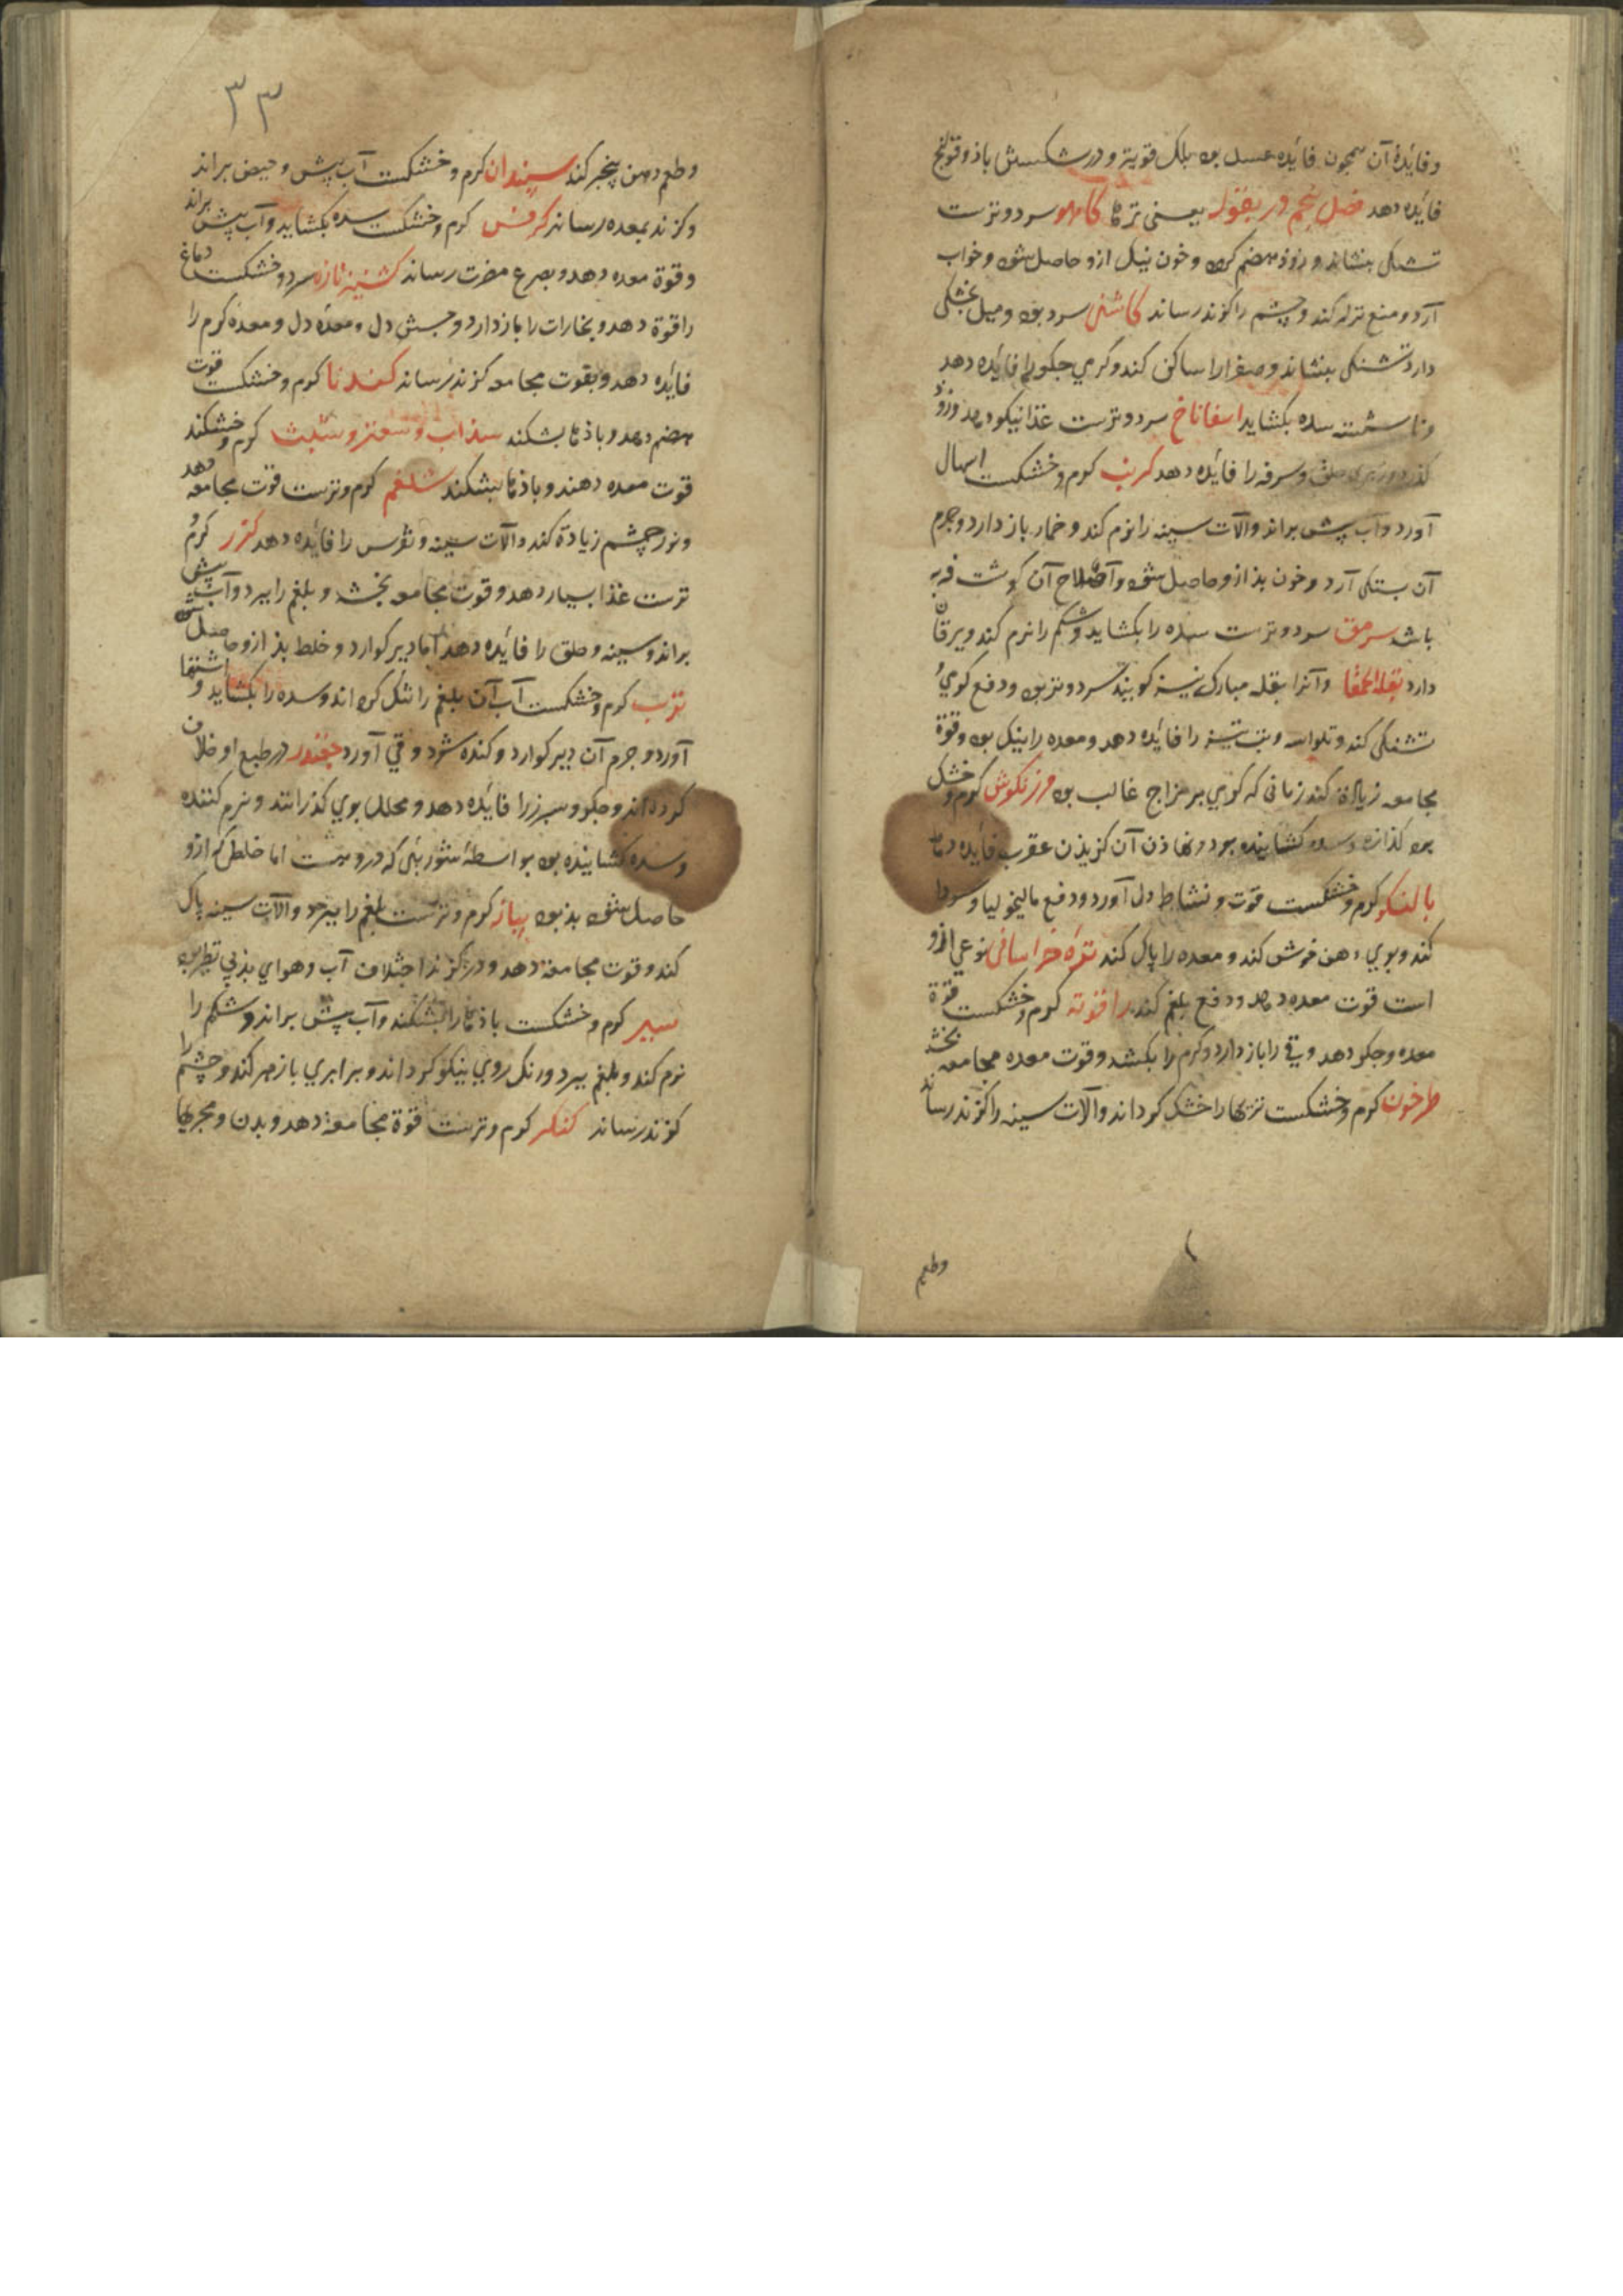 و فایدهٔ آن همچون فایده عسل بود بلک قویتر و در شکستن باذ و قولنج
فایده دهد فصل پنجم در بقول یعنی ترها کاهو سرد و ترست
تشنگی بنشاند و زوذ هضم گردد و خون نیک ازو حاصل شود و خواب
آرد و منع نزله کند و چشم را گزند رساند کاشنی سرد بود و میل بخشکی
دارد تشنگی بنشاند و صفرا را ساکن کند و گرمی جگر را فایده دهد
و ناشسته سده بگشاید اسفاناخ سرد و ترست غذا نیکو دهد و زوذ
گذرد و حلق و سرفه را فایده دهد کرنب گرم و خشکست اسهال
آورد و آب پشت براند و آلات سینه را نرم کند و خمار باز دارد و جرم
آن بستگی آرد و خون بذ ازو حاصل شود و اصلاح آن گوشت فربه
باشد سرمق سرد و ترست سده را بگشاید و شکم را نرم کند و یرقان
دارد بقلة الحمقا و آنرا بقله مبارک نیز گویند سرد و تر بود و دفع گرمی و
تشنگی کند و تلواسه و تب تیز را فایده دهد و معده را نیک بود و قوة
مجامعه زیادة کند زمانی که گرمی بر مزاج غالب بود مرزنگوش گرم و خشک
بود گذازنده و سده گشاینده بود و نهاذن آن گزیذن عقرب فایده دهد
بالنگو گرم و خشکست قوت و نشاط دل آورد و دفع مالیخولیا و سودا
کند و بوی دهن خوش کند و معده را پاک کند تره خراسانی نوعی ازو
است قوت معده دهد و دفع بلغم کند گرم و خشکست قوة
معده و جگر دهد و قی را باز دارد و کرم را بکشد و قوت معده مجامعه بخشد
طرخون گرم و خشکست تریها را خشک گرداند و آلات سینه را گزند رساند
وطعم
۳۳
وطعم دهن بخیر کند سپندان گرم و خشکست آب پشت و حیض براند
و گزند بمعده رساند کرفس گرم و خشکست سده بگشاید و آب پشت براند
و قوة معده دهد و بصرع مضرت رساند گشنیز تازه سرد و خشکست دماغ
را قوة دهد و بخارات را باز دارد و جستن دل و معده دل و معده گرم را
فایده دهد و بقوت مجامعه گزند رساند گندنا گرم و خشکست قوت
هضم دهد و باذها بشکند سذاب و سعتر و شبث گرم و خشکند
قوت معده دهند و باذها بشکند شلغم گرم و ترست قوت مجامعه دهد
و نور چشم زیادة کند و آلات سینه و نقرس را فایده دهد گزر گرم و
ترست غذا بسیار دهد و قوت مجامعه بخشد و بلغم را ببرد و آب پشت
براند و سینه و حلق را فایده دهد اما دیر گوارد و خلط بذ ازو حاصل شود
ترب گرم و خشکست آب آن بلغم را تنک گرداند و سده را بگشاید و اشتها
آورد و جرم آن دیر گوارد و گنده شود و قی آورد چغندر در طبع او خلاف
کرده‌اند و جگر و سپرز را فایده دهد و محلل بوی گذرانند و نرم کننده
و سده گشاینده بود بواسطهٔ شوربئی که دروست اما خلطی که ازو
حاصل شود بذ بود پیاز گرم و ترست بلغم را ببرد و آلات سینه پاک
کند و قوت مجامعة دهد و در گزند اختلاف آب و هوای بذ بی نظیر بود
سیر گرم و خشکست باذها را بشکند و آب پشت براند و شکم را
نرم کند و بلغم ببرد و رنگ روی نیکو گرداند و برابری با زهر کند و چشم را
گزند رساند کنگر گرم و ترست قوة مجامعة دهد و بدن و مجریها